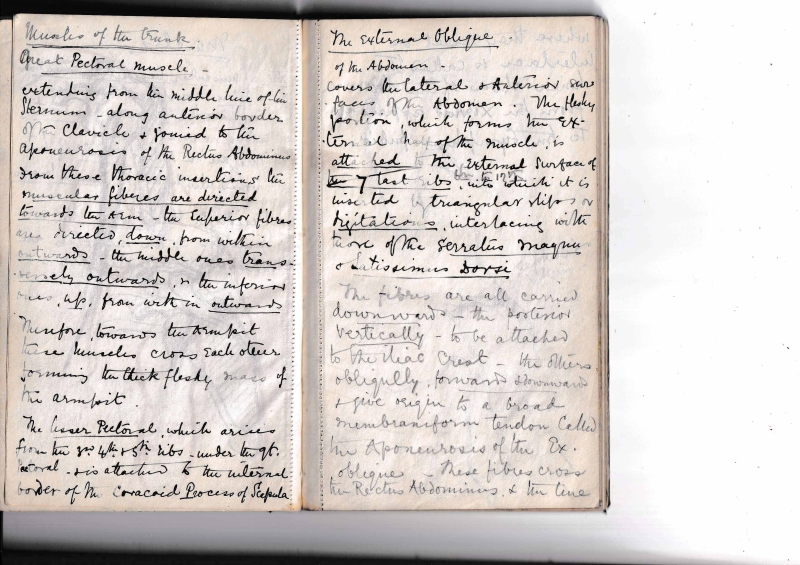 Muscles of the trunk.
Great Pectoral muscle -
extending from the middle line of the
Sternum - along anterior border
of the Clavicle & joined to the
aponeurosis of the Rectus Abdominus
From these thoracic insertions the
muscular fibres are directed
towards the Arm - the Superior fibres
are directed, down, from within
outwards - the middle ones trans-
versely outwards, & the inferior
ones, up, from with in outwards
Therefore, towards the Armpit
these Muscles cross each other
forming the thick fleshy mass of
the armpit.
The lesser Pectoral, which arises
from the 3rd 4th & 5th ribs - under the gt.
Pectoral - & is attached to the internal
border of the Coracoid Process of Scapula
The External Oblique
of the Abdomen -
covers the lateral & Anterior sur
faces of the Abdomen. The fleshy
portion, which forms the Ex-
ternal half of the muscle, is
attached to the external surface of
the 7 last ribs, into which it is
inserted by triangular slips or
digitations, interlacing with
those of the Serratus magnus
& Latissimus Dorsi
The fibres are all carried
downwards - the posterior
vertically - to be attached
to the iliac Crest - the others
obliquely, forwards & downwards
& give origin to a broad
membraniform tendon Called
the Aponeurosis of the Ex.
oblique - These fibres cross
the Rectus Abdominus & the line